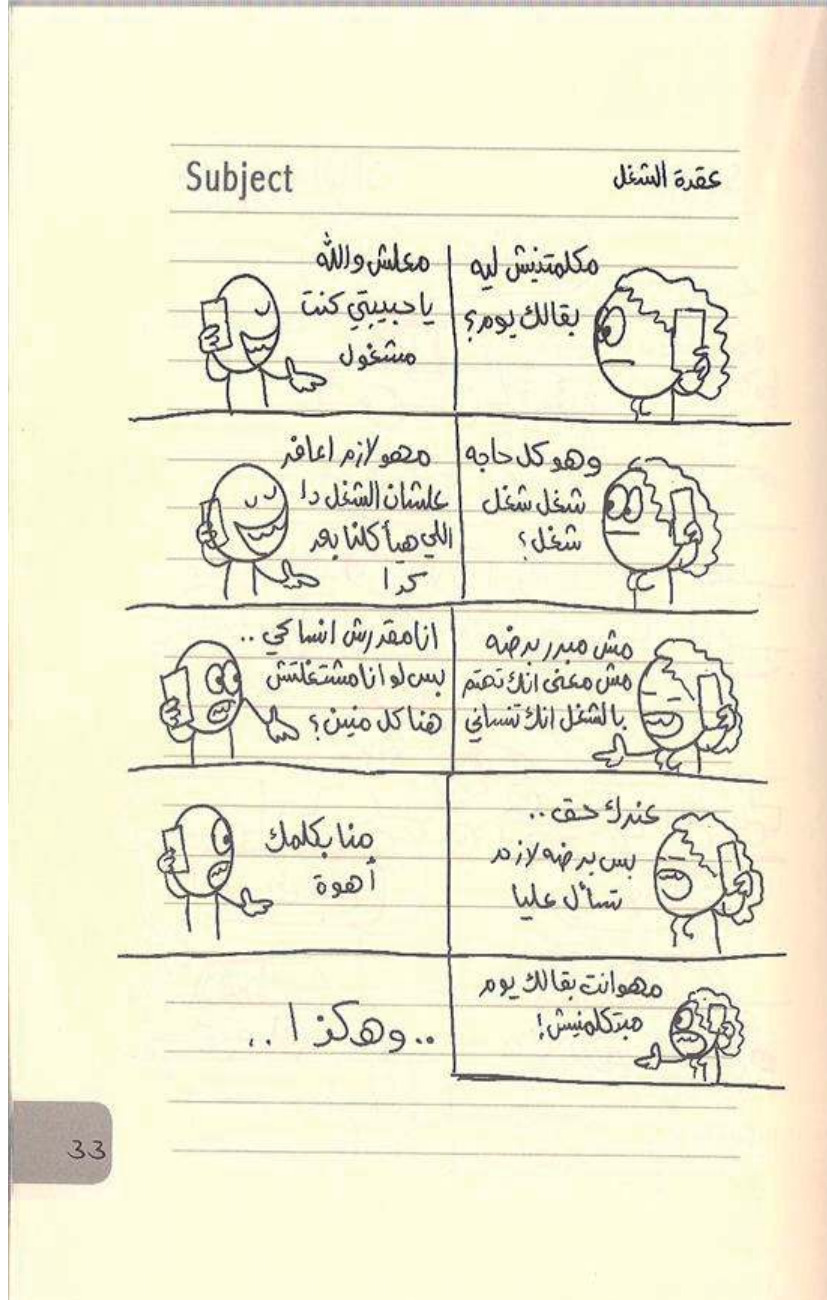 Subject
عقدة الشغل
مكلمتنيش ليه
بقالك يوم؟
معلش والله
يا حبيبتي كنت
مشغول
وهو كل حاجه
شغل شغل
شغل؟
مهو لازم اعافر
علشان الشغل دا
اللي هيأكلنا بعد
كدا
مش مبرر برضه
مش معنى انك تهتم
بالشغل انك تنساني
انا مقدرش انساكي ..
بس لو انا مشتغلتش
هناكل منين؟
عندك حق ..
بس برضه لازم
تسأل عليا
منا بكلمك
أهوة
مهو انت بقالك يوم
مبتكلمنيش!
.. وهكذا ..
33